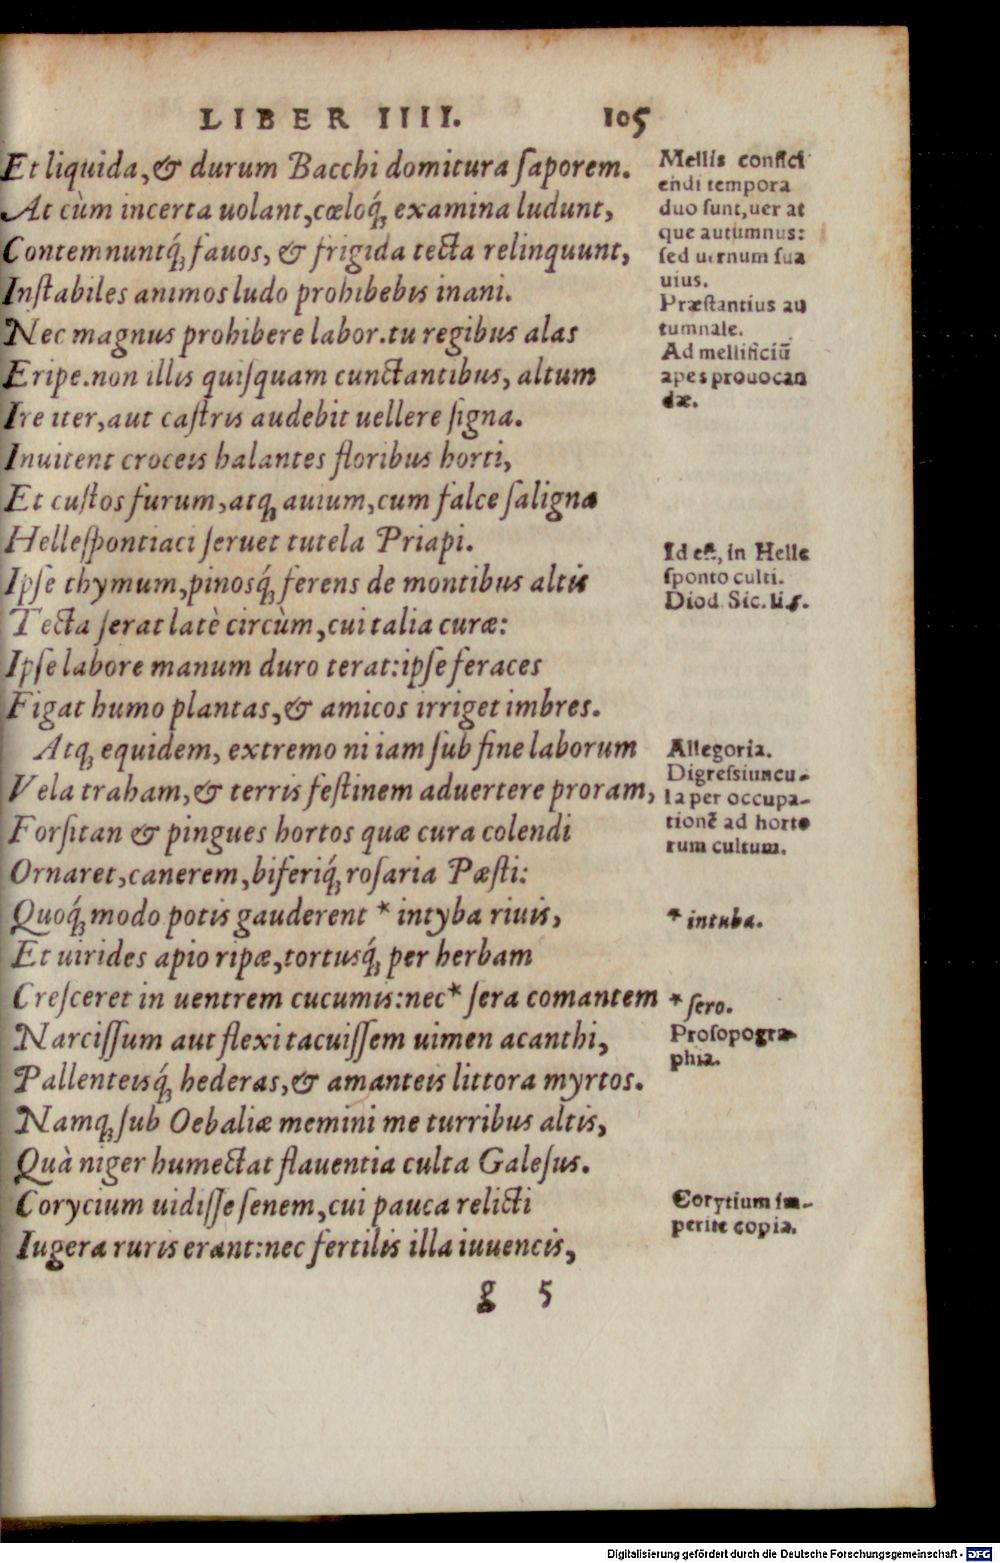 LIBER IIII. 105
Et liquida, & durum Bacchi domitura ſaporem.
At cùm incerta uolant, cœloq́; examina ludunt,
Contemnuntq́; fauos, & frigida tecta relinquunt,
Inſtabiles animos ludo prohibebis inani.
Nec magnus prohibere labor. tu regibus alas
Eripe. non illis quiſquam cunctantibus, altum
Ire iter, aut caſtris audebit uellere ſigna.
Inuitent croceis halantes floribus horti,
Et cuſtos furum, atq; auium, cum falce ſaligna
Helleſpontiaci ſeruet tutela Priapi.
Ipſe thymum, pinosq́; ferens de montibus altis
Tecta ſerat latè circùm, cui talia curæ:
Ipſe labore manum duro terat: ipſe feraces
Figat humo plantas, & amicos irriget imbres.
Atq; equidem, extremo ni iam ſub fine laborum
Vela traham, & terris feſtinem aduertere proram,
Forſitan & pingues hortos quæ cura colendi
Ornaret, canerem, biferiq́; roſaria Pæſti:
Quoq́; modo potis gauderent * intyba riuis,
Et uirides apio ripæ, tortusq́; per herbam
Creſceret in uentrem cucumis: nec * ſera comantem
Narciſſum aut flexi tacuiſſem uimen acanthi,
Pallenteisq́; hederas, & amanteis littora myrtos.
Namq; ſub Oebaliæ memini me turribus altis,
Quà niger humectat flauentia culta Galeſus.
Corycium uidiſſe ſenem, cui pauca relicti
Iugera ruris erant: nec fertilis illa iuuencis,
g 5
Mellis confici
endi tempora
duo ſunt, uer at
que autumnus:
ſed uernum ſua
uius.
Præſtantius au
tumnale.
Ad mellificiū
apes prouocan
dæ.
Id eſt, in Helle
ſponto culti.
Diod. Sic. li. 5.
Allegoria.
Digreſsiuncu-
la per occupa-
tionē ad horto
rum cultum.
* intuba.
* ſero.
Proſopogra-
phia.
Corytium im-
perite copia.
Digitalisierung gefördert durch die Deutsche Forschungsgemeinschaft - DFG